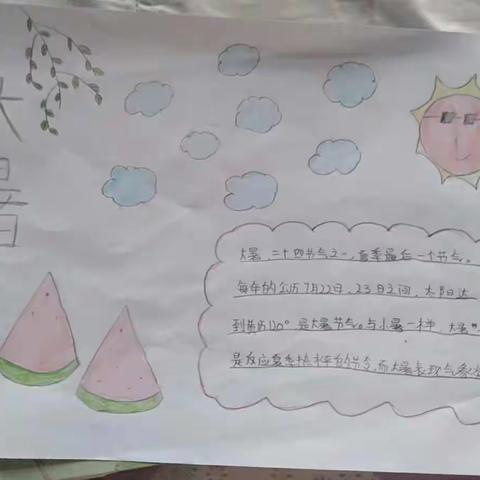 大
暑
大暑,二十四节气之一,夏季最后一个节气。
每年的公历7月22日,23日之间,太阳达
到黄历120°是大暑节气。与小暑一样,大暑
是反应夏季炎热程度的节令,而大暑表现气象